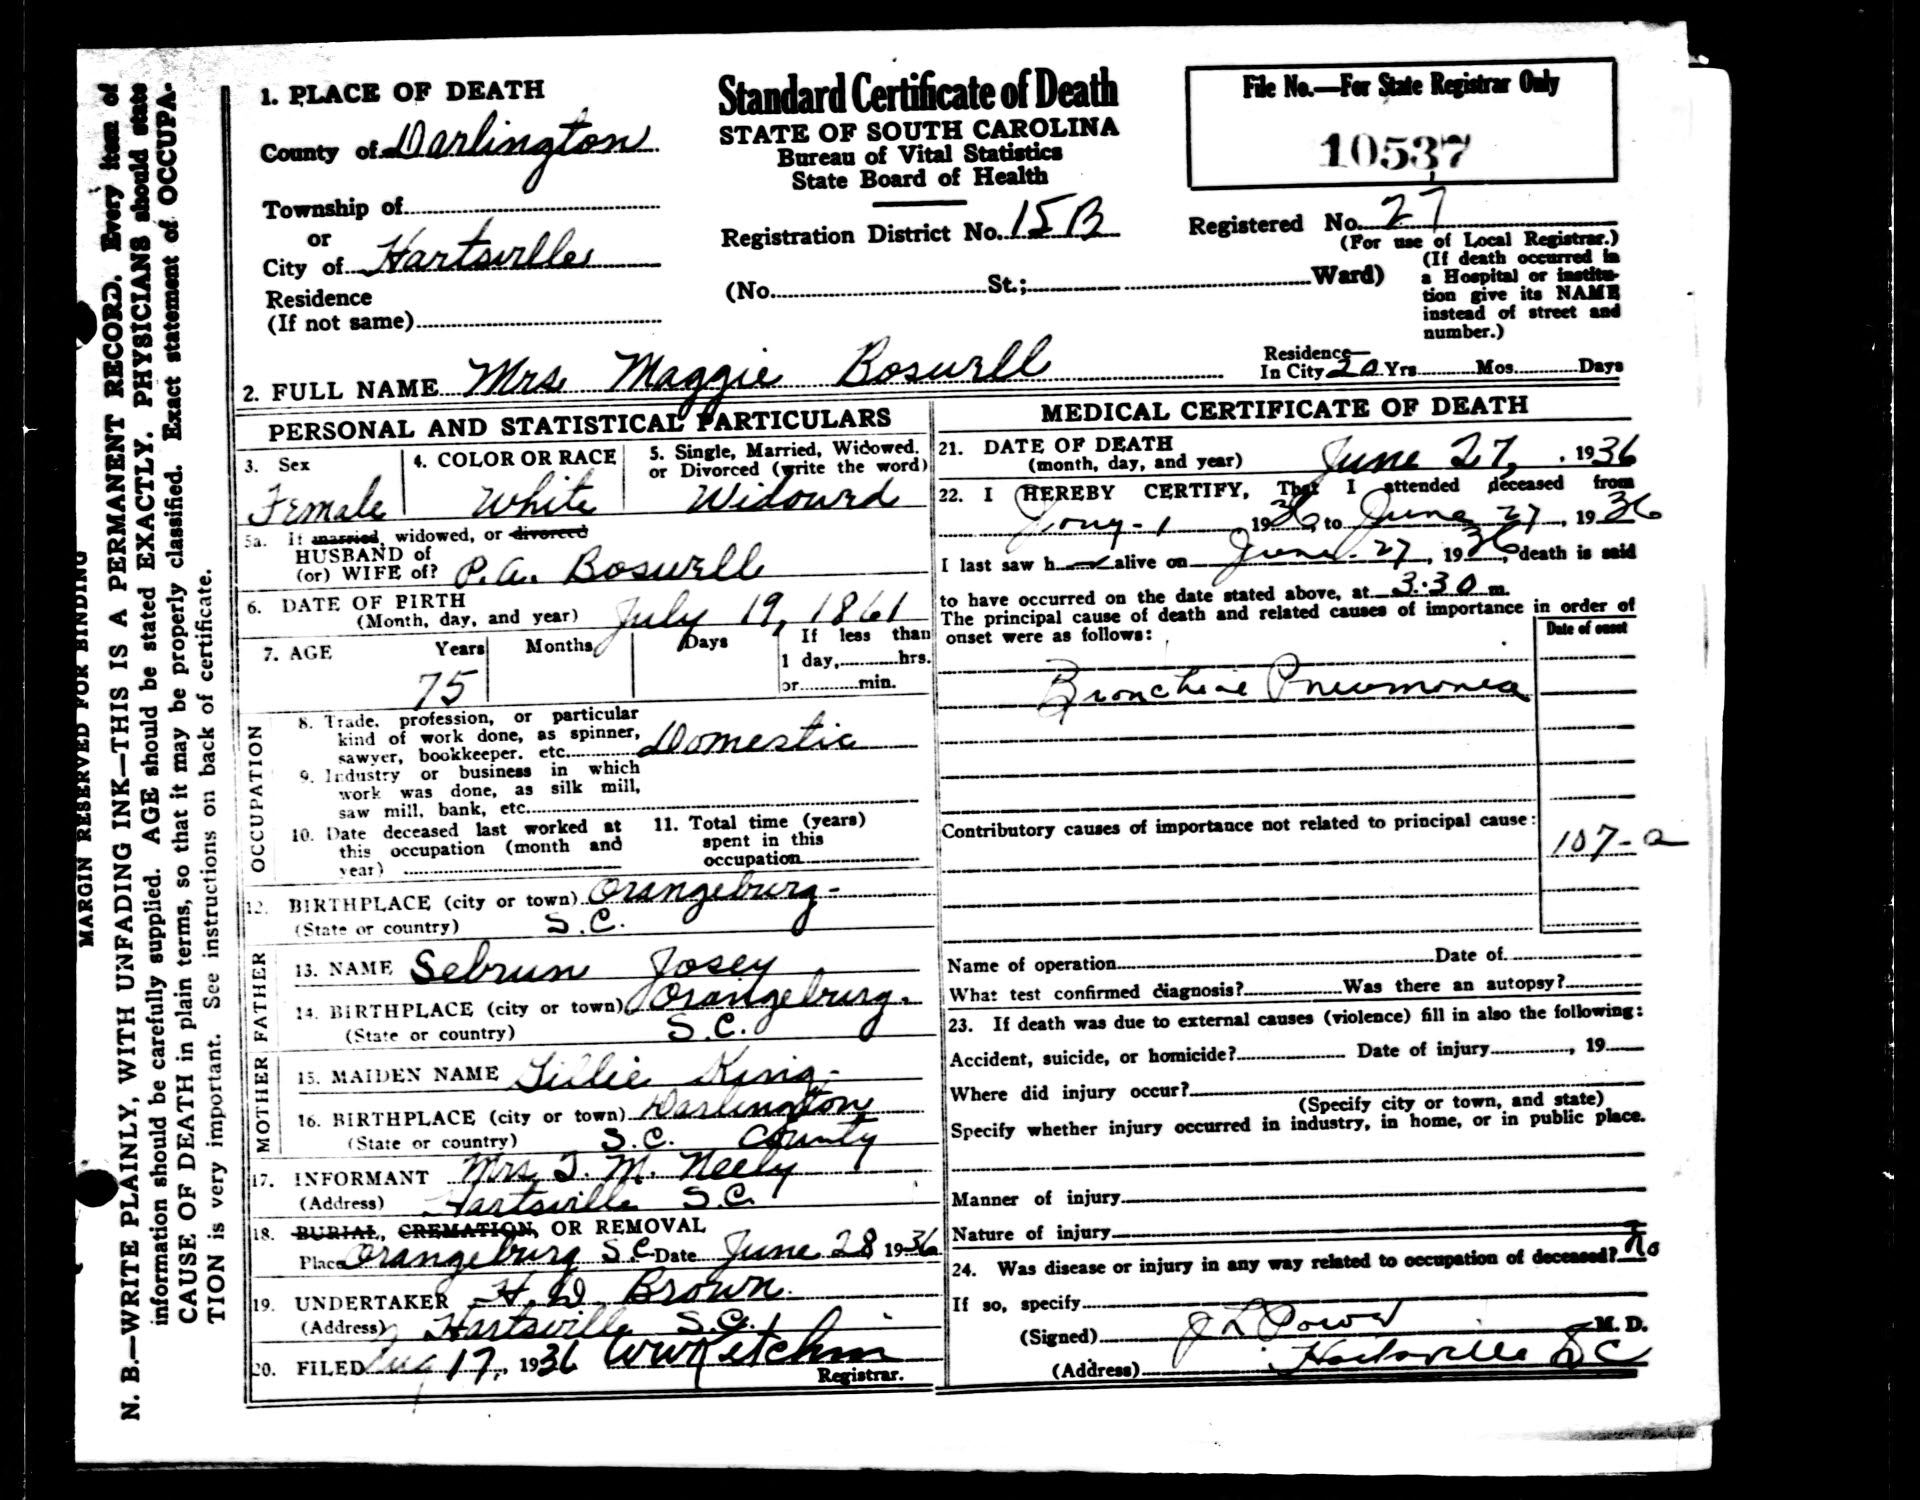 MARGIN RESERVED FOR BINDING
N. B.—WRITE PLAINLY, WITH UNFADING INK—THIS IS A PERMANENT RECORD. Every item of
information should be carefully supplied. AGE should be stated EXACTLY. PHYSICIANS should state
CAUSE OF DEATH in plain terms, so that it may be properly classified. Exact statement of OCCUPA-
TION is very important. See instructions on back of certificate.
1. PLACE OF DEATH
County of Darlington
Township of
or
City of Hartsville
Residence
(If not same)
Standard Certificate of Death
STATE OF SOUTH CAROLINA
Bureau of Vital Statistics
State Board of Health
Registration District No. 15B
(No. St.; Ward)
File No.—For State Registrar Only
10537
Registered No. 27
(For use of Local Registrar.)
(If death occurred in
a Hospital or institu-
tion give its NAME
instead of street and
number.)
2. FULL NAME Mrs Maggie Boswell
Residence—
In City 20 Yrs. Mos. Days
PERSONAL AND STATISTICAL PARTICULARS
3. Sex
Female
4. COLOR OR RACE
White
5. Single, Married, Widowed,
or Divorced (write the word)
Widowed
5a. If married, widowed, or divorced
HUSBAND of
(or) WIFE of? P.A. Boswell
6. DATE OF BIRTH
(Month, day, and year) July 19, 1861
7. AGE Years Months Days If less than
1 day, hrs.
or min.
75
OCCUPATION
8. Trade, profession, or particular
kind of work done, as spinner,
sawyer, bookkeeper, etc. Domestic
9. Industry or business in which
work was done, as silk mill,
saw mill, bank, etc.
10. Date deceased last worked at
this occupation (month and
year)
11. Total time (years)
spent in this
occupation
12. BIRTHPLACE (city or town) Orangeburg-
(State or country) S.C.
FATHER
13. NAME Sebrun Josey
14. BIRTHPLACE (city or town) Orangeburg.
(State or country) S.C.
MOTHER
15. MAIDEN NAME Lillie King-
16. BIRTHPLACE (city or town) Darlington
(State or country) S.C. County
17. INFORMANT Mrs J. M. Neely
(Address) Hartsville S.C.
18. BURIAL, CREMATION, OR REMOVAL
Place Orangeburg S.C. Date June 28 1936
19. UNDERTAKER H. D. Brown.
(Address) Hartsville S.C.
20. FILED Aug 17, 1936 WW Ketchin
Registrar.
MEDICAL CERTIFICATE OF DEATH
21. DATE OF DEATH
(month, day, and year) June 27, 1936
22. I HEREBY CERTIFY, That I attended deceased from
Jany-1 1936, to June 27, 1936
I last saw h alive on June-27, 1936, death is said
to have occurred on the date stated above, at 3:30 m.
The principal cause of death and related causes of importance in order of
onset were as follows:
Date of onset
Bronchial Pneumonia
Contributory causes of importance not related to principal cause:
107-a
Name of operation Date of
What test confirmed diagnosis? Was there an autopsy?
23. If death was due to external causes (violence) fill in also the following:
Accident, suicide, or homicide? Date of injury , 19
Where did injury occur?
(Specify city or town, and state)
Specify whether injury occurred in industry, in home, or in public place.
Manner of injury
Nature of injury
24. Was disease or injury in any way related to occupation of deceased? No
If so, specify
(Signed) J L Powe M. D.
(Address) Hartsville S C